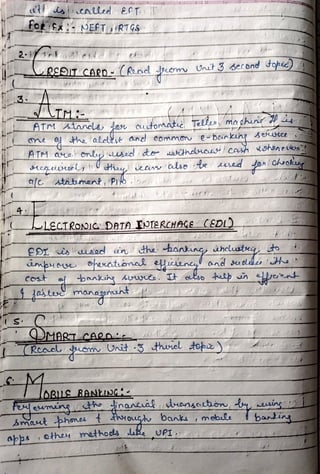 it is called EFT.
FOR EX:- NEFT, RTGS
2. CREDIT CARD- (Read from Unit 3 second topic)
3. ATM:-
ATM stands for automatic Teller machine It is
one of the oldest and common e-banking service.
ATM are only used to withdraw cash whenever
required, they can also be used for checking
a/c statement,
4. ELECTRONIC DATA INTERCHAGE (EDI)
EDI is used in the banking industry to
improve operational efficiency and reduce the
cost of banking service. It also help in efficient
& faster managment
5. SMART CARD:-
(Read from Unit-3 third topic)
6. MOBILE BANKING:-
Performing the financial transaction by using
smart phones & through banks, mobile banking
apps. other methods like, UPI.